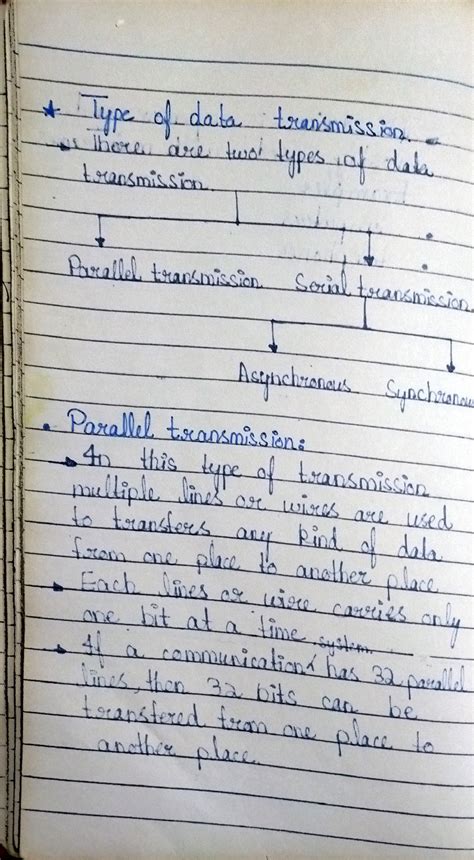 * Type of data transmission.
→ There are two types of data
transmission
Parallel transmission Serial transmission
Asynchronous Synchronous
• Parallel transmission:
→ In this type of transmission
multiple lines or wires are used
to transfers any kind of data
from one place to another place
→ Each lines or wire carries only
one bit at a time
→ If a communication system has 32 parallel
lines, then 32 bits can be
transfered from one place to
another place.